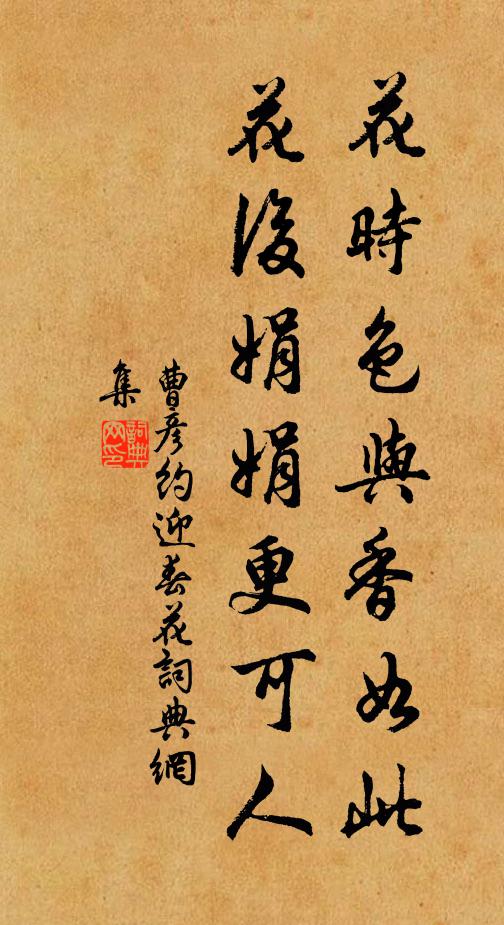 花時色與香如此
花後娟娟更可人
曹彥約迎春花詞典網
集
詞典
网印